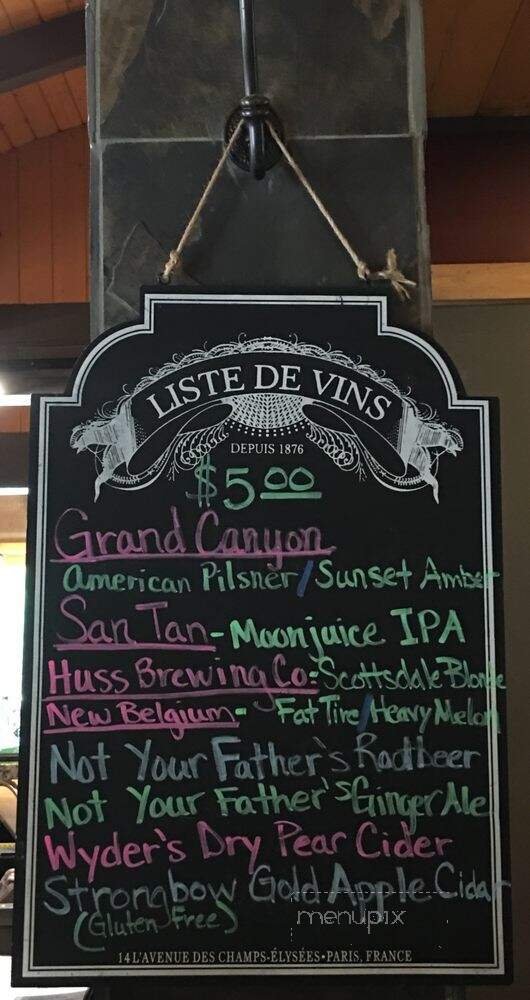 LISTE DE VINS
DEPUIS 1876
$5.00
Grand Canyon
American Pilsner/Sunset Amber
San Tan - Moonjuice IPA
Huss Brewing Co - Scottsdale Blonde
New Belgium - Fat Tire/Heavy Melon
Not Your Father's Rootbeer
Not Your Father's Ginger Ale
Wyder's Dry Pear Cider
Strongbow Gold Apple Cidar
(Gluten Free)
menupix
14 L'AVENUE DES CHAMPS-ÉLYSÉES•PARIS, FRANCE